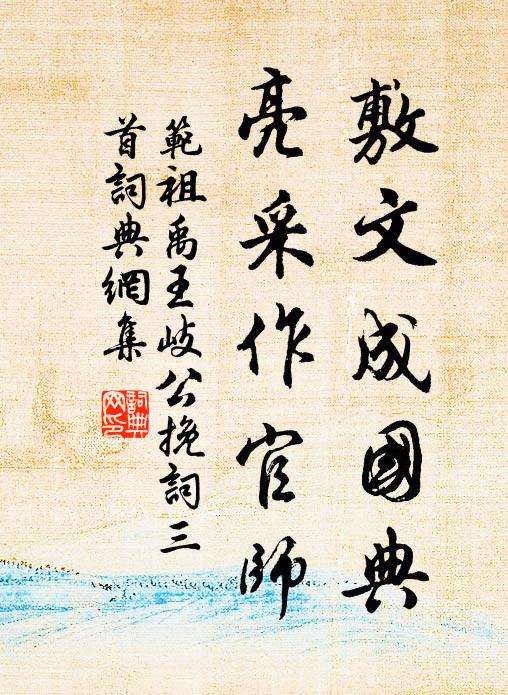 敷文成國典
亮采作官師
範祖禹王岐公挽詞三
首詞典網集
詞典網印